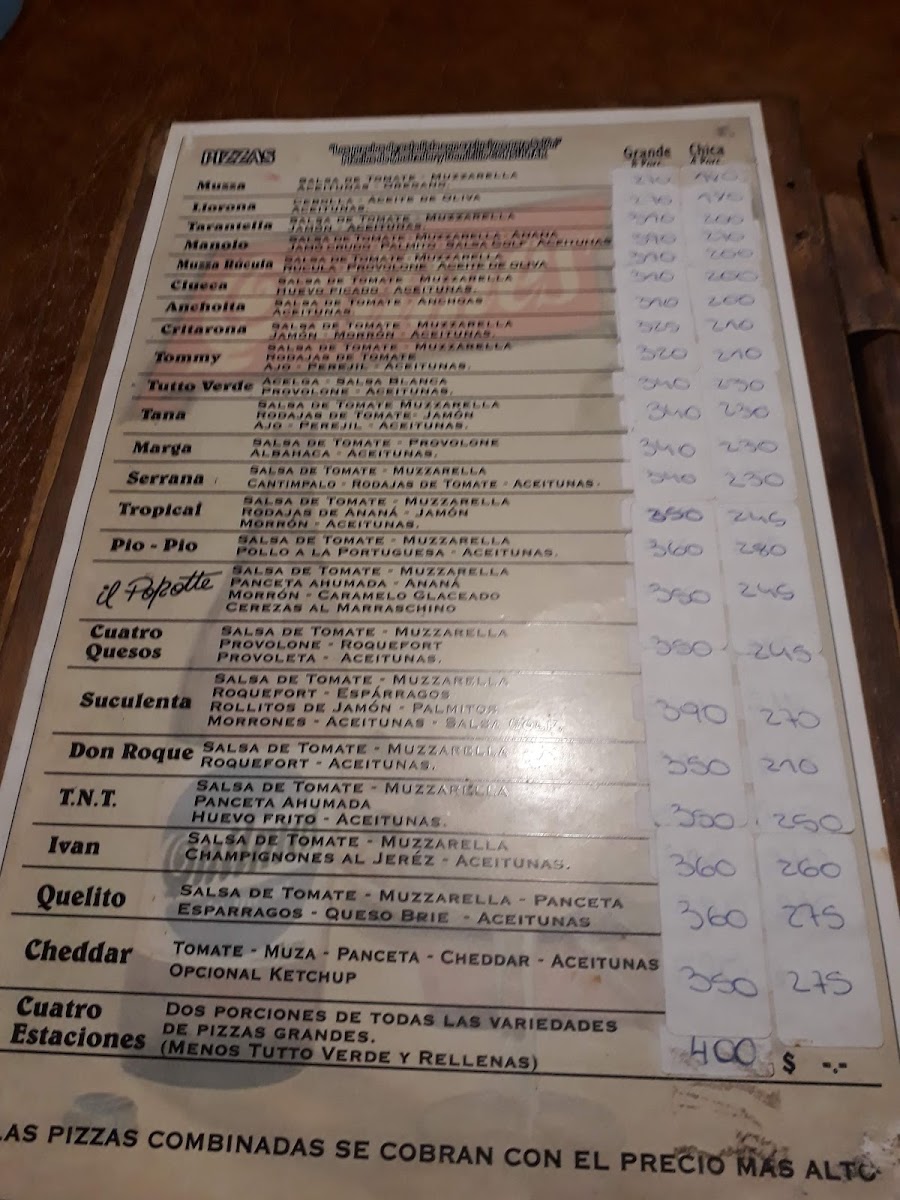 PIZZAS
Grande Chica
8 Porc. 4 Porc.
Muzza SALSA DE TOMATE - MUZZARELLA 270
ACEITUNAS - OREGANO.
Llorona CEBOLLA - ACEITE DE OLIVA 270 175
ACEITUNAS.
Tarantella SALSA DE TOMATE - MUZZARELLA 310 200
JAMÓN - ACEITUNAS.
Manolo SALSA DE TOMATE - MUZZARELLA - ANANA 390 270
JAMÓ CRUDO - PALMITO - SALSA GOLF - ACEITUNAS
Muzza Rúcula SALSA DE TOMATE - MUZZARELLA 310 200
RÚCULA - PROVOLONE - ACEITE DE OLIVA
Clueca SALSA DE TOMATE - MUZZARELLA 310 200
HUEVO PICADO - ACEITUNAS.
Anchoita SALSA DE TOMATE - ANCHOAS 310 200
ACEITUNAS.
Critarona SALSA DE TOMATE - MUZZARELLA 325 210
JAMÓN - MORRÓN - ACEITUNAS.
Tommy SALSA DE TOMATE - MUZZARELLA 320 210
RODAJAS DE TOMATE
AJO - PEREJIL - ACEITUNAS.
Tutto Verde ACELGA - SALSA BLANCA 340 230
PROVOLONE - ACEITUNAS.
Tana SALSA DE TOMATE MUZZARELLA 340 230
RODAJAS DE TOMATE- JAMÓN
AJO - PEREJIL - ACEITUNAS.
Marga SALSA DE TOMATE - PROVOLONE 340 230
ALBAHACA - ACEITUNAS.
Serrana SALSA DE TOMATE - MUZZARELLA 340 230
CANTIMPALO - RODAJAS DE TOMATE - ACEITUNAS.
Tropical SALSA DE TOMATE - MUZZARELLA 350 245
RODAJAS DE ANANÁ - JAMÓN
MORRÓN - ACEITUNAS.
Pio - Pio SALSA DE TOMATE - MUZZARELLA 360 280
POLLO A LA PORTUGUESA - ACEITUNAS.
il Popotte SALSA DE TOMATE - MUZZARELLA 350 245
PANCETA AHUMADA - ANANÁ
MORRÓN - CARAMELO GLACEADO
CEREZAS AL MARRASCHINO
Cuatro Quesos SALSA DE TOMATE - MUZZARELLA 350 245
PROVOLONE - ROQUEFORT
PROVOLETA - ACEITUNAS.
Suculenta SALSA DE TOMATE - MUZZARELLA 390 270
ROQUEFORT - ESPÁRRAGOS
ROLLITOS DE JAMÓN - PALMITOS
MORRONES - ACEITUNAS - SALSA GOLF.
Don Roque SALSA DE TOMATE - MUZZARELLA 350 210
ROQUEFORT - ACEITUNAS.
T.N.T. SALSA DE TOMATE - MUZZARELLA 350 250
PANCETA AHUMADA
HUEVO FRITO - ACEITUNAS.
Ivan SALSA DE TOMATE - MUZZARELLA 360 260
CHAMPIGNONES AL JERÉZ - ACEITUNAS.
Quelito SALSA DE TOMATE - MUZZARELLA - PANCETA 360 275
ESPARRAGOS - QUESO BRIE - ACEITUNAS
Cheddar TOMATE - MUZA - PANCETA - CHEDDAR - ACEITUNAS 350 275
OPCIONAL KETCHUP
Cuatro Estaciones DOS PORCIONES DE TODAS LAS VARIEDADES 400 $ -.-
DE PIZZAS GRANDES.
(MENOS TUTTO VERDE Y RELLENAS)
LAS PIZZAS COMBINADAS SE COBRAN CON EL PRECIO MAS ALTO